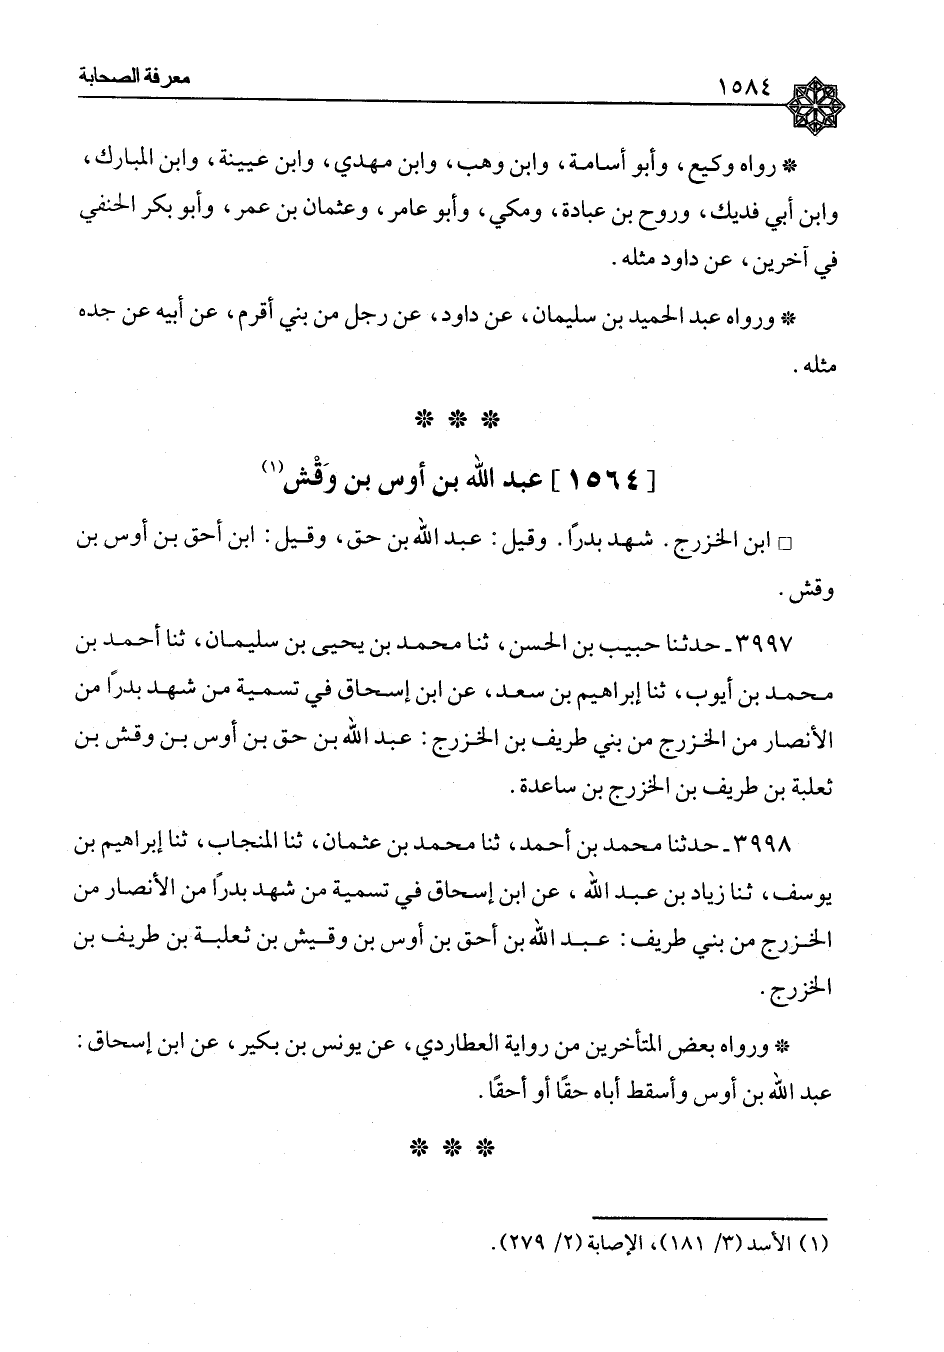 معرفة الصحابة
١٥٨٤
* رواه وكيع، وأبو أسامة، وابن وهب، وابن مهدي، وابن عيينة، وابن المبارك،
وابن أبي فديك، وروح بن عبادة، ومكي، وأبو عامر، وعثمان بن عمر، وأبو بكر الحنفي
في آخرين، عن داود مثله.
* ورواه عبد الحميد بن سليمان، عن داود، عن رجل من بني أقرم، عن أبيه عن جده
مثله.
* * *
[١٥٦٤] عبد الله بن أوس بن وَقْش(١)
□ ابن الخزرج. شهد بدرًا. وقيل: عبد الله بن حق، وقيل: ابن أحق بن أوس بن
وقش.
٣٩٩٧ـ حدثنا حبيب بن الحسن، ثنا محمد بن يحيى بن سليمان، ثنا أحمد بن
محمد بن أيوب، ثنا إبراهيم بن سعد، عن ابن إسحاق في تسمية من شهد بدرًا من
الأنصار من الخزرج من بني طريف بن الخزرج: عبد الله بن حق بن أوس بن وقش بن
ثعلبة بن طريف بن الخزرج بن ساعدة.
٣٩٩٨ـ حدثنا محمد بن أحمد، ثنا محمد بن عثمان، ثنا المنجاب، ثنا إبراهيم بن
يوسف، ثنا زياد بن عبد الله، عن ابن إسحاق في تسمية من شهد بدرًا من الأنصار من
الخزرج من بني طريف: عبد الله بن أحق بن أوس بن وقيش بن ثعلبة بن طريف بن
الخزرج.
* ورواه بعض المتأخرين من رواية العطاردي، عن يونس بن بكير، عن ابن إسحاق:
عبد الله بن أوس وأسقط أباه حقًا أو أحقًا.
* * *
(١) الأسد (٣/ ١٨١)، الإصابة (٢/ ٢٧٩).